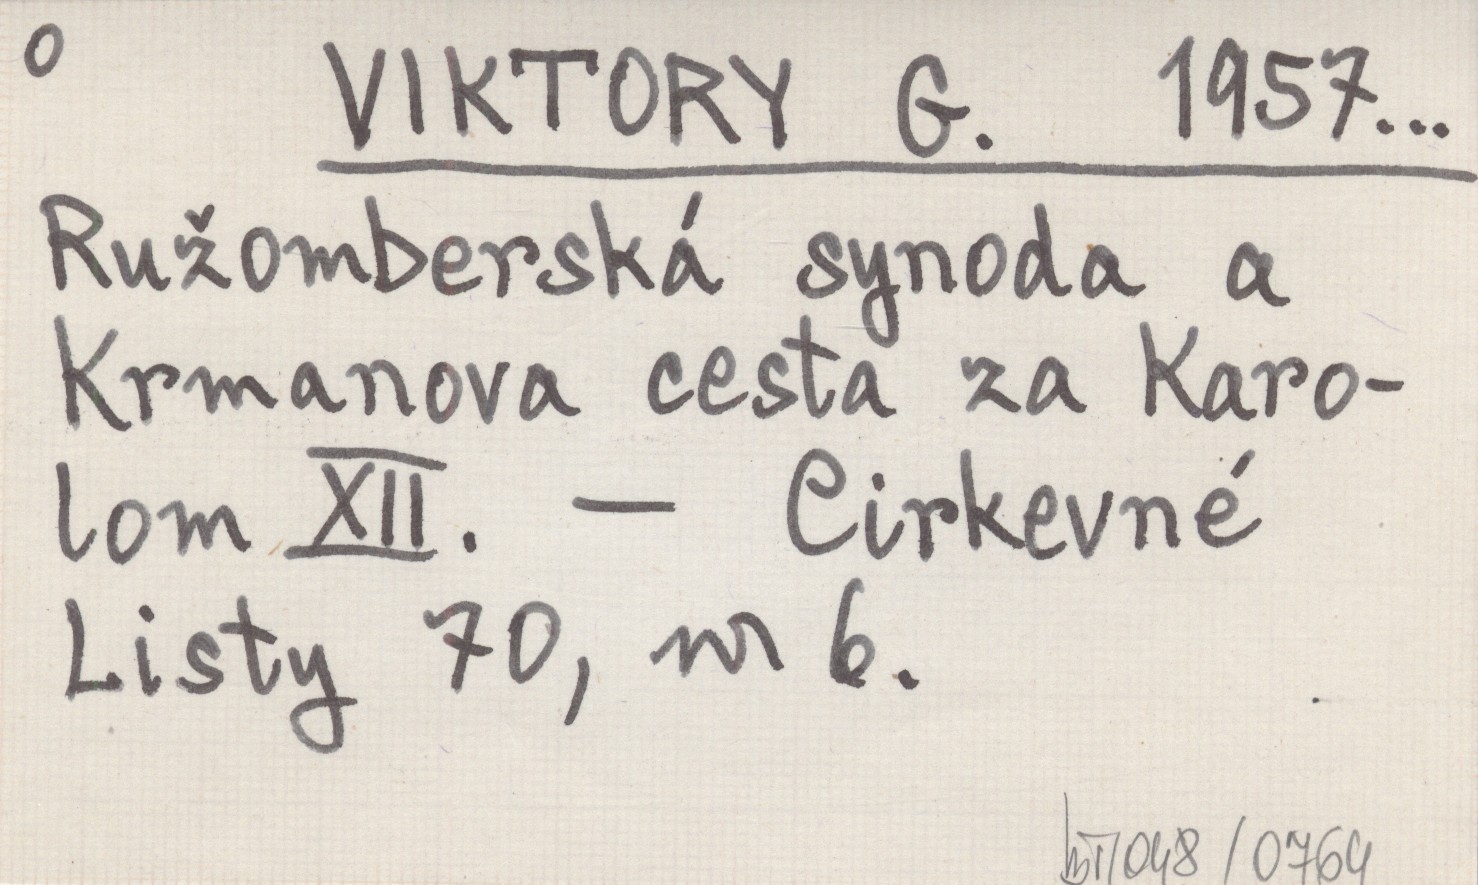 o VIKTORY G. 1957...
Ružomberská synoda a
Krmanova cesta za Karo-
lom XII. — Cirkevné
Listy 70, nr 6.
/048/0764